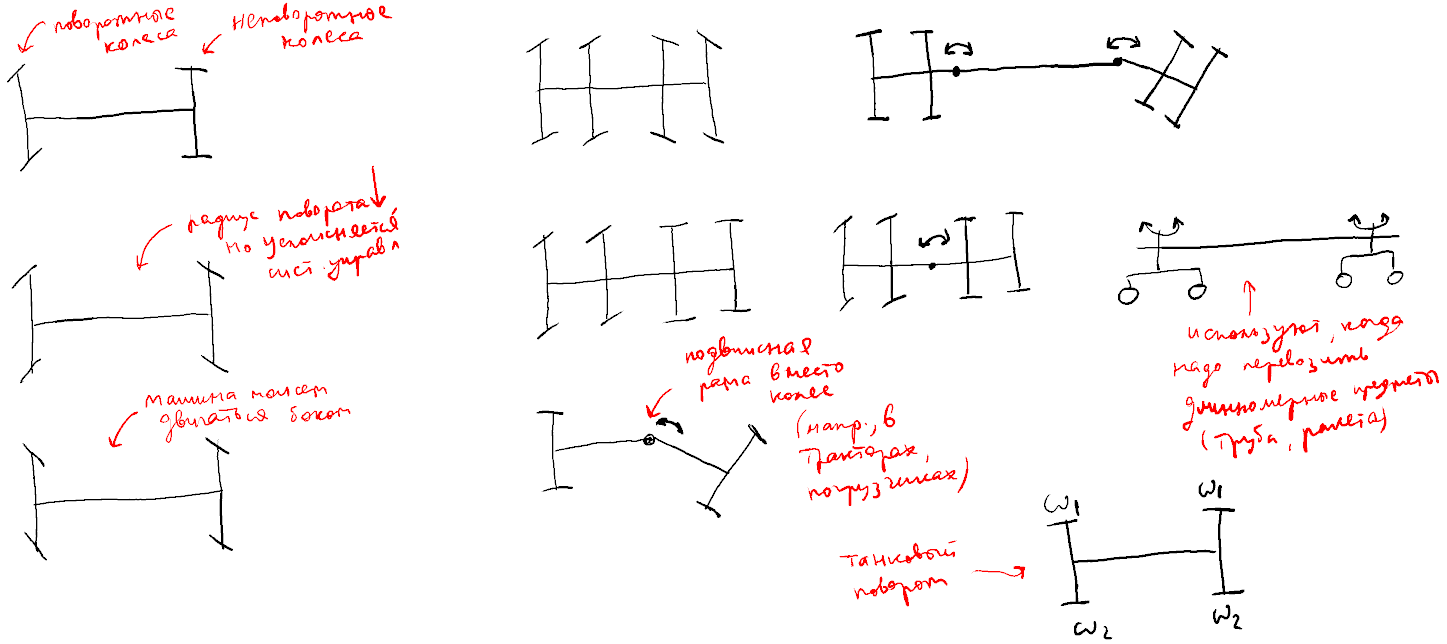 поворотные
колеса
неповоротное
колеса
радиус поворота ↓
но усложняется
сист. управл
машина может
двигаться боком
подвижная
рама вместо
колес
(напр., в
тракторах,
погрузчиках)
используют, когда
надо перевозить
длинномерные предметы
(труба, ракета)
танковый
поворот
ω1
ω1
ω2
ω2